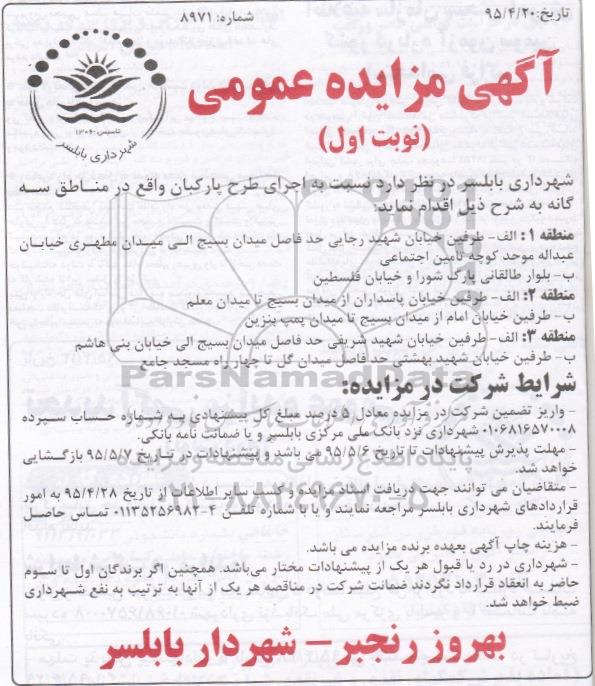 تاریخ: ۹۵/۴/۲۰
شماره: ۸۹۷۱
آگهی مزایده عمومی
(نوبت اول)
تاسیس: ۱۳۰۶
شهرداری بابلسر
شهرداری بابلسر در نظر دارد نسبت به اجرای طرح پارکبان واقع در مناطق سه
گانه به شرح ذیل اقدام نماید:
منطقه ۱: الف- طرفین خیابان شهید رجایی حد فاصل میدان بسیج الی میدان مطهری خیابان
عبداله موحد کوچه تامین اجتماعی
ب- بلوار طالقانی پارک شورا و خیابان فلسطین
منطقه ۲: الف- طرفین خیابان پاسداران از میدان بسیج تا میدان معلم
ب- طرفین خیابان امام از میدان بسیج تا میدان پمپ بنزین
منطقه ۳: الف- طرفین خیابان شهید شریفی حد فاصل میدان بسیج الی خیابان بنی هاشم
ب- طرفین خیابان شهید بهشتی حد فاصل میدان گل تا چهار راه مسجد جامع
ParsNamadData
شرایط شرکت در مزایده:
- واریز تضمین شرکت در مزایده معادل ۵ درصد مبلغ کل پیشنهادی به شماره حساب سپرده
۰۱۰۶۸۱۶۵۷۰۰۰۸ شهرداری نزد بانک ملی مرکزی بابلسر و یا ضمانت نامه بانکی.
- مهلت پذیرش پیشنهادات تا تاریخ ۹۵/۵/۶ می باشد و پیشنهادات در تاریخ ۹۵/۵/۷ بازگشایی
خواهد شد.
- متقاضیان می توانند جهت دریافت اسناد مزایده و کسب سایر اطلاعات از تاریخ ۹۵/۴/۲۸ به امور
قراردادهای شهرداری بابلسر مراجعه نمایند و یا با شماره تلفن ۴-۰۱۱۳۵۲۵۶۹۸۲ تماس حاصل
فرمایند.
- هزینه چاپ آگهی بعهده برنده مزایده می باشد.
- شهرداری در رد یا قبول هر یک از پیشنهادات مختار می‌باشد. همچنین اگر برندگان اول تا سوم
حاضر به انعقاد قرارداد نگردند ضمانت شرکت در مناقصه هر یک از آنها به ترتیب به نفع شهرداری
ضبط خواهد شد.
بهروز رنجبر- شهردار بابلسر